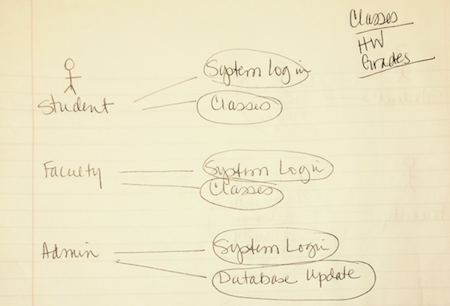 Classes
HW
Grades
System Login
Student
Classes
Faculty
System Login
Classes
Admin
System Login
Database Update